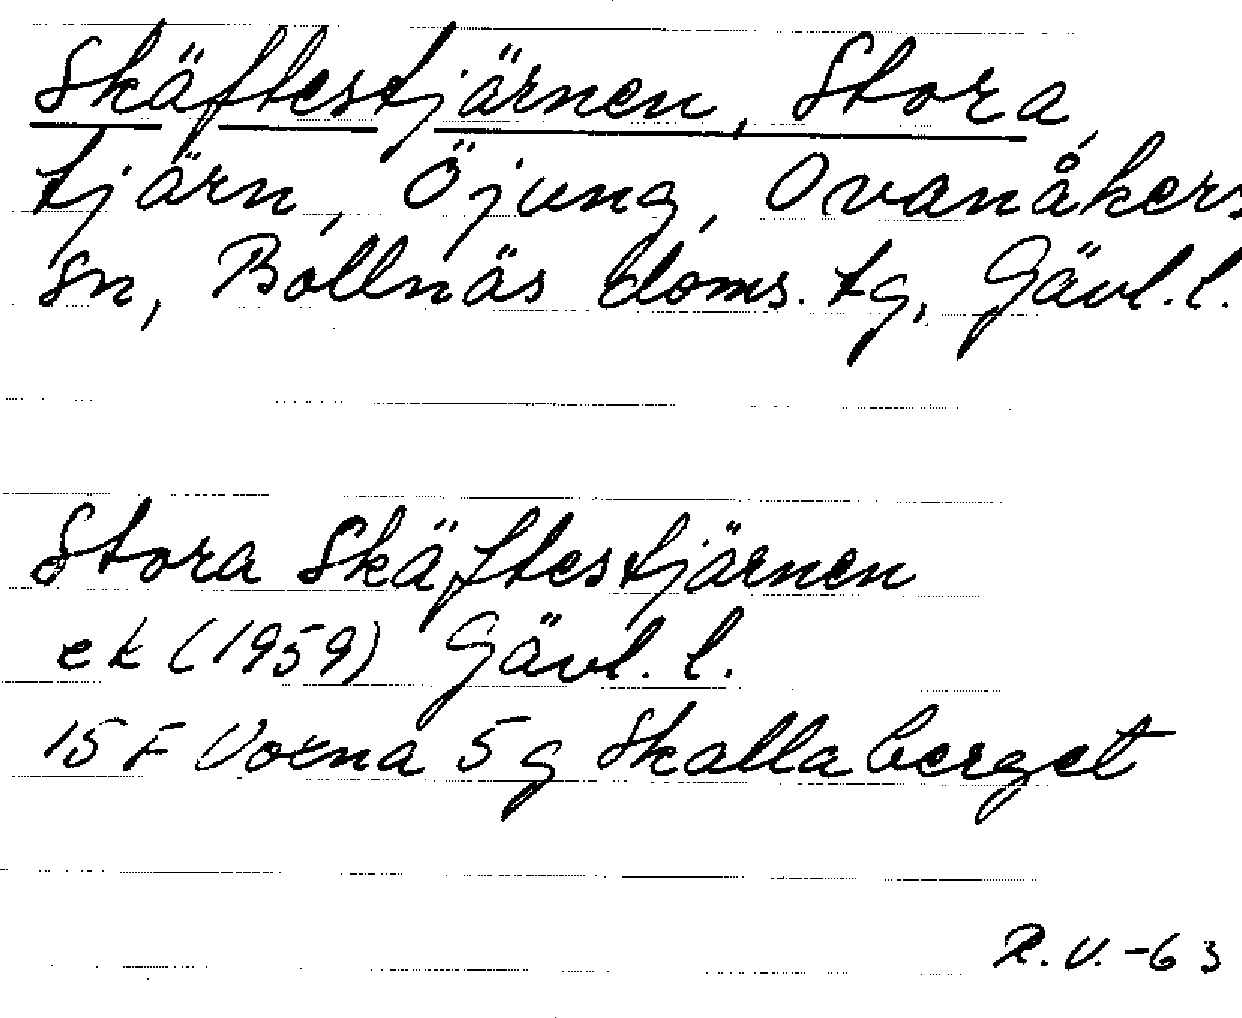 Skäftestjärnen, Stora,
tjärn, Öjung, Ovanåkers
sn, Bollnäs doms. tg, Gävl. l.
Stora Skäftestjärnen
ek (1959) Gävl. l.
15 F Voxna 5 g Skallaberget
R. V. -63